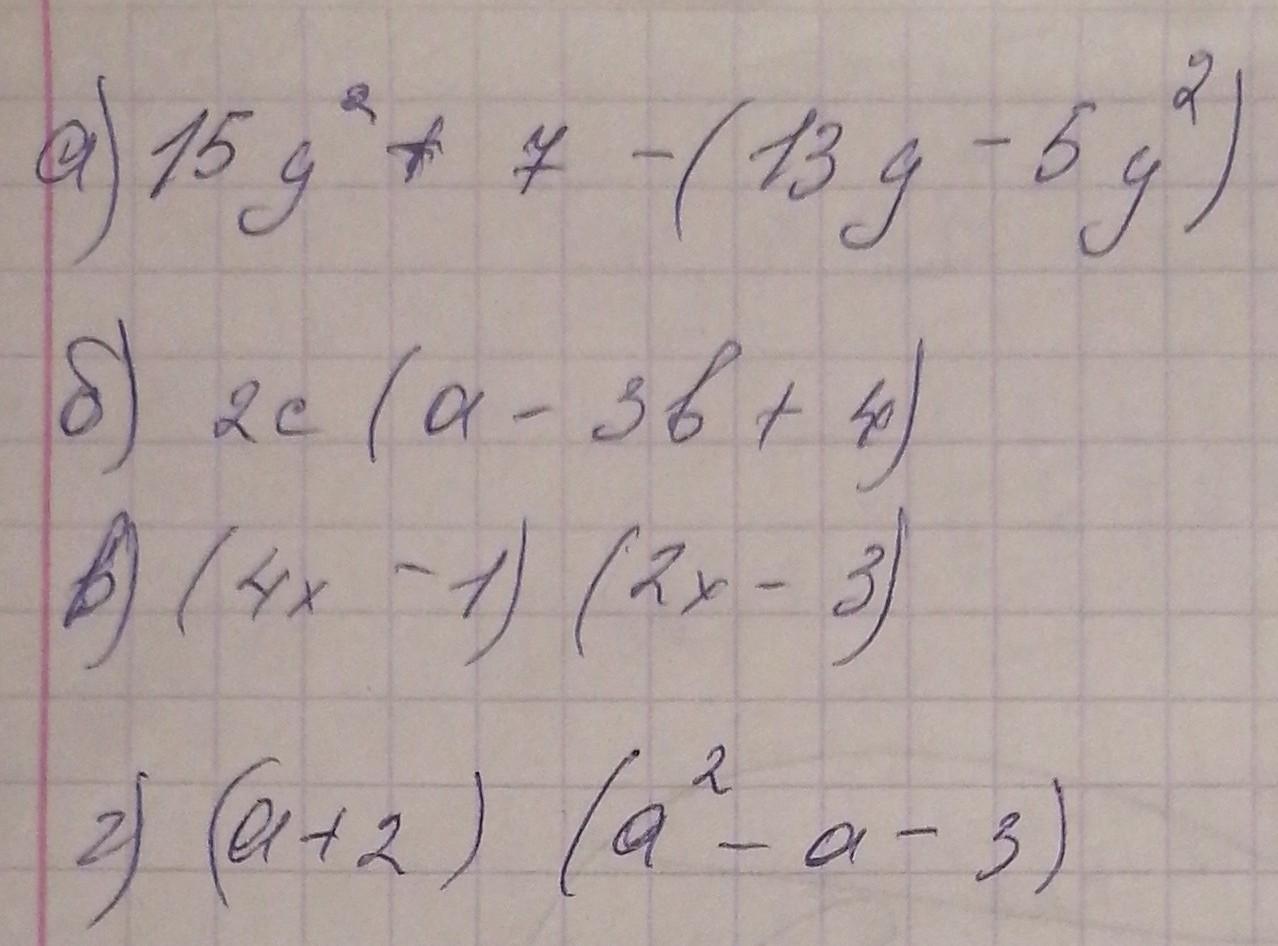 а) 15y² + 7 - (13y - 5y²)
б) 2c (a - 3b + 4)
в) (4x - 1) (2x - 3)
г) (a + 2) (a² - a - 3)